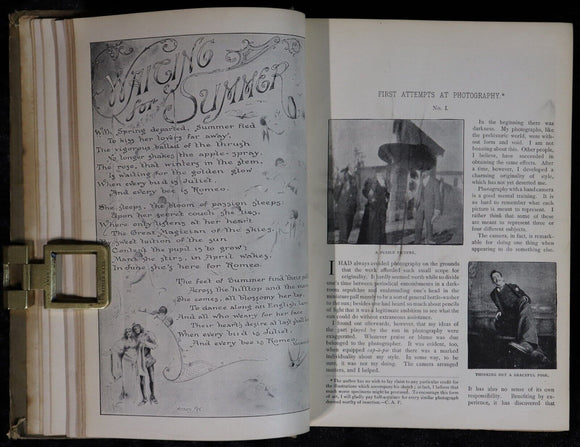 WAITING
for SUMMER
With Spring departed, Summer fled
To kiss her lovers far away.
The vigorous ballad of the thrush
No longer shakes the apple-spray.
The rose, that winters in the stem,
Is waiting for the golden glow
When every bud is Juliet
And every bee is Romeo.
She sleeps, the bloom of passion sleeps,
Upon her secret couch she lies,
Where only listens at her heart
The great Magician of the skies.
sweet tuition of the sun
the pupil is to grow;
March she stirs, in April wakes,
In June she's here for Romeo.
The feet of Summer find their
She comes, all blossomy her
To dance along an English
And all who weary for her face
Their hearts' desire at last shall
When every bud is Juliet,
And every bee is Romeo.
FIRST ATTEMPTS AT PHOTOGRAPHY.*
No. I.
A PUZZLE PICTURE.
I HAD always avoided photography on the grounds
that the work afforded such small scope for
originality. It hardly seemed worth while to divide
one's time between periodical entombments in a dark-
room
miniature pall merely to be a sort of general bottle-washer
to the sun; besides one had heard so much about pencils
of light that it was a legitimate ambition to see what the
sun could do without extraneous assistance.
I found out afterwards, however, that my ideas of
the part played by the sun in photography were
exaggerated. Whatever praise or blame was due
belonged to the photographer. It was evident, too,
when equipped cap-à-pie that there was a marked
individuality about my style. In some way, to be
sure, it was not my doing. The camera arranged
matters, and I helped.
* The author has no wish to lay claim to any particular credit for
the illustrations which accompany his sketch; in fact, I believe that
much worse specimens might be procured. To encourage this form
of art, I will gladly pay half-a-guinea for every similar photograph
deemed worthy of insertion.—C. A. P.
In the beginning there was
darkness. My photographs, like
the prehistoric world, were with-
out form and void. I am not
boasting about this. Other people,
I believe, have succeeded in
obtaining the same effects. After
a time, however, I developed a
charming originality of style,
which has not yet deserted me.
Photography with a hand camera
is a good mental training. It is
so hard to remember what each
picture is meant to represent. I
rather think that some of these
are meant to represent three or
four different subjects.
The camera, in fact, is remark-
able for doing one thing when
appearing to do something else.
THINKING OUT A GRACEFUL POSE.
It has also no sense of its own
responsibility. Benefiting by
experience, it has discovered that